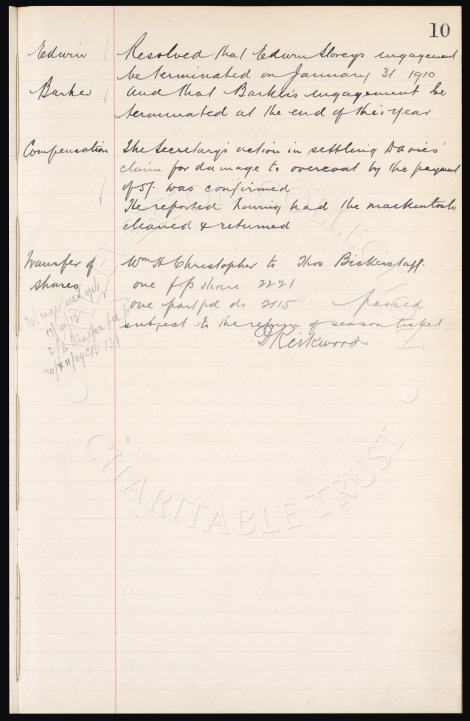 10
Edwin Resolved that Edwin Storeys engagement
be terminated on January 31 1910
Barker and that Barkers engagement be
terminated at the end of this year
Compensation The Secretary's action in settling Davies'
claim for damage to overcoat by the payment
of 5/. was confirmed
He reported having had the mackintosh
cleaned & returned
Transfer of Wm H Christopher to Thos Bickerstaff.
shares one f/p share 2221
one part pd do 2115 passed
subject to the return of season ticket
D Kirkwood
EVERTON COLLECTION
CHARITABLE TRUST